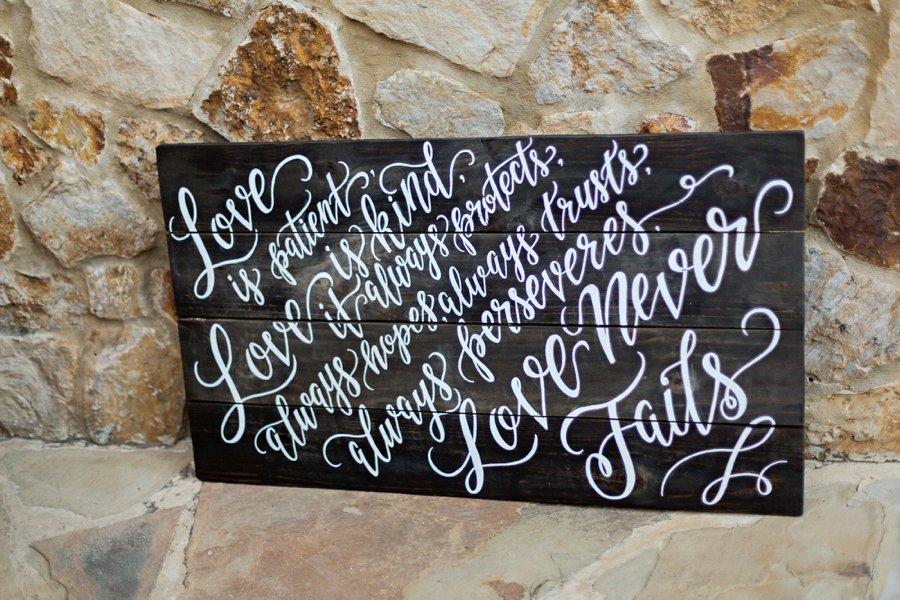 Love
is patient,
Love is kind.
it always protects,
always hopes, always trusts,
always perseveres.
Love Never
Fails
L